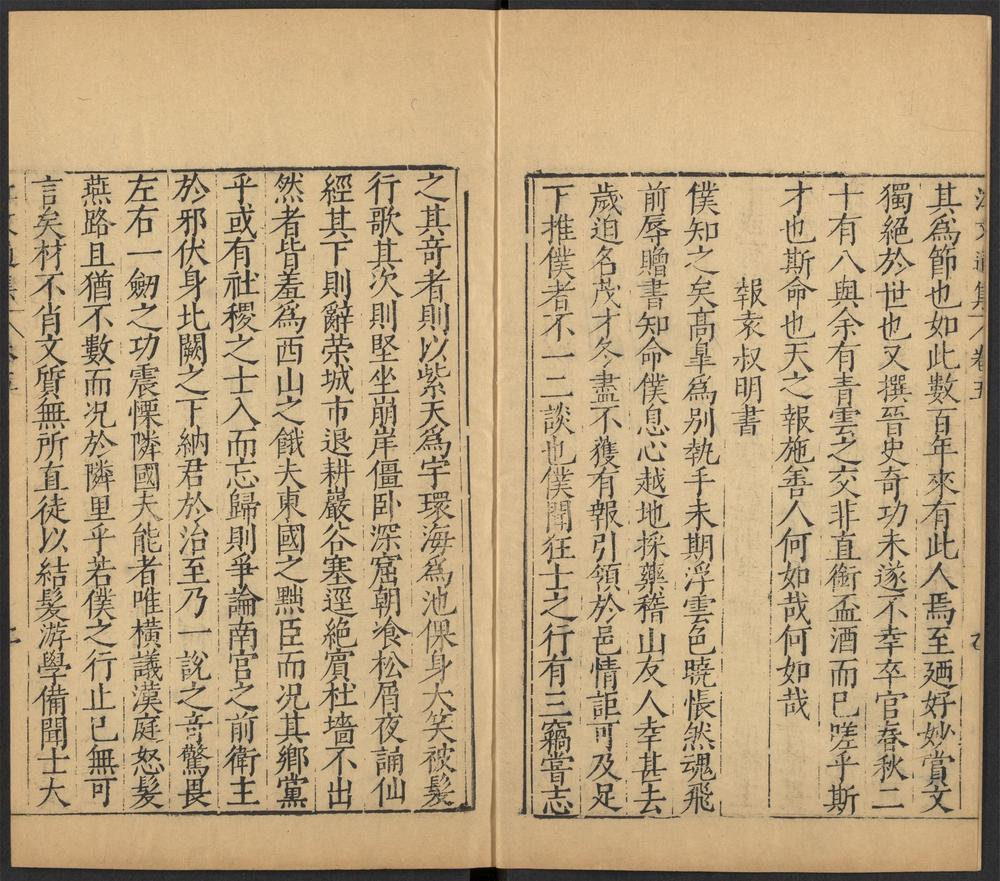 其爲節也如此數百年來有此人焉至廼好妙賞文
獨絕於世也又撰晉史奇功未遂不幸卒官春秋二
十有八與余有青雲之交非直銜盃酒而已嗟乎斯
才也斯命也天之報施善人何如哉何如哉
報袁叔明書
僕知之矣高皐爲別執手未期浮雲色曉悵然魂飛
前辱贈書知命僕息心越地採藥稽山友人幸甚去
歲迫名茂才冬盡不獲有報引領於邑情詎可及足
下推僕者不一二談也僕聞狂士之行有三竊嘗志
之其奇者則以紫天爲宇環海爲池倮身大笑被髮
行歌其次則堅坐崩岸僵卧深窟朝飡松屑夜誦仙
經其下則辭荣城市退耕巖谷塞逕絶賓杜墻不出
然者皆羞爲西山之餓夫東國之黜臣而况其鄉黨
乎或有社稷之士入而忘歸則爭論南宫之前衛主
於邪伏身北闕之下納君於治至乃一說之奇驚畏
左右一劒之功震慄隣國夫能者唯橫議漢庭怒髮
燕路且猶不數而况於隣里乎若僕之行止已無可
言矣材不肖文質無所直徒以結髮游學備聞士大